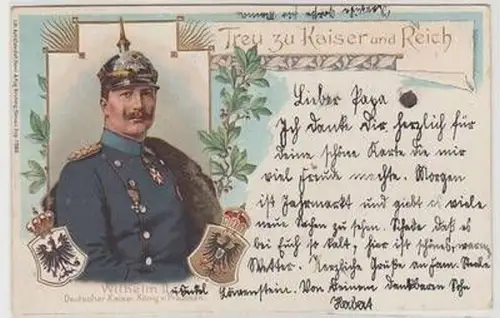 Treu zu Kaiser und Reich
Lieber Papa
Ich danke Dir herzlich für
deine schöne Karte die mir
viel Freude machte. Morgen
ist Jahrmarkt und giebt es viele
neue Sachen zu sehen. Schade daß es
bei Euch so kalt, hier ist schönes, warmes
Wetter. Herzliche Grüße an Fam.
Löwenstein. Von Deinem dankbaren Sohn
Wilhelm II
Deutscher Kaiser, König v. Preussen.